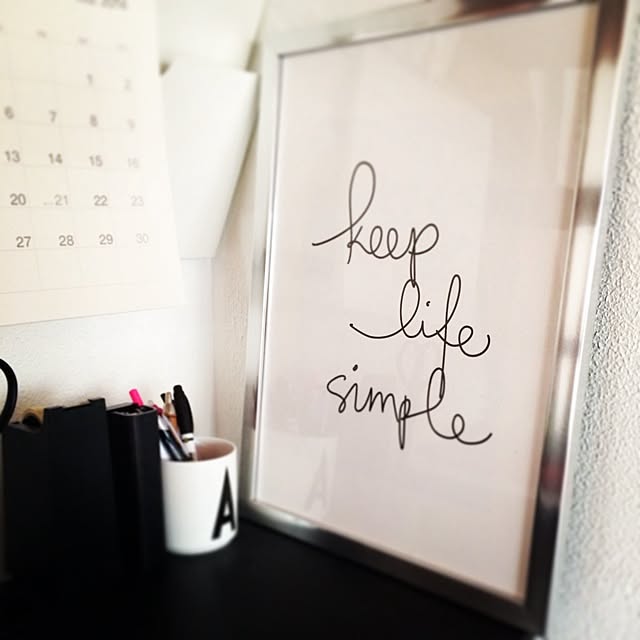 1 2
6 7 8 9
13 14 15 16
20 21 22 23
27 28 29 30
keep
life
simple
A